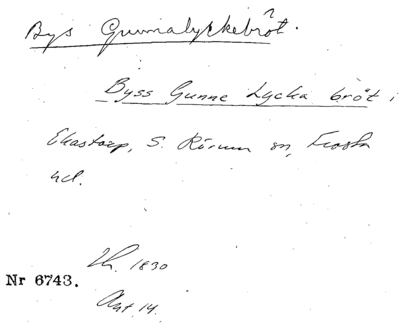 Bys Gunnalyckebrôt.
Byss Gunne Lycka brôt i
Ekastorp, S. Rörum sn, Frosta
hd.
Lh. 1830
Nr 6743.
Akt. 14.